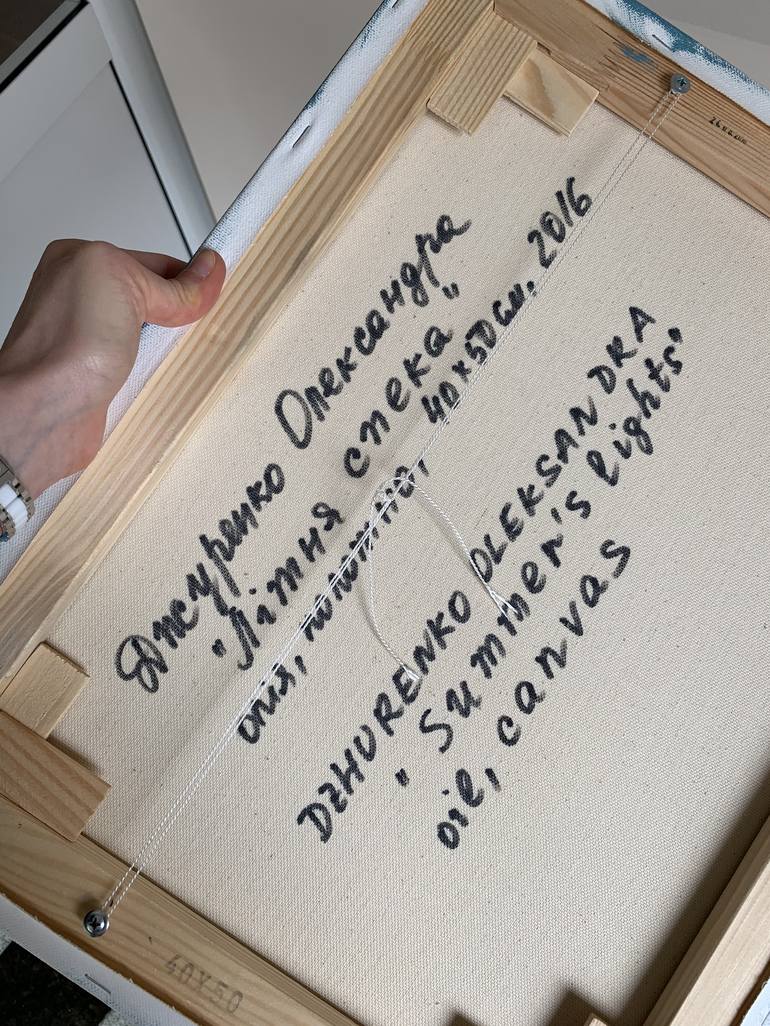 Джуренко Олександра
"Літня спека"
олія, полотно, 40х50см, 2016
DZHURENKO OLEKSANDRA
"Summer's lights"
oil, canvas
40X50